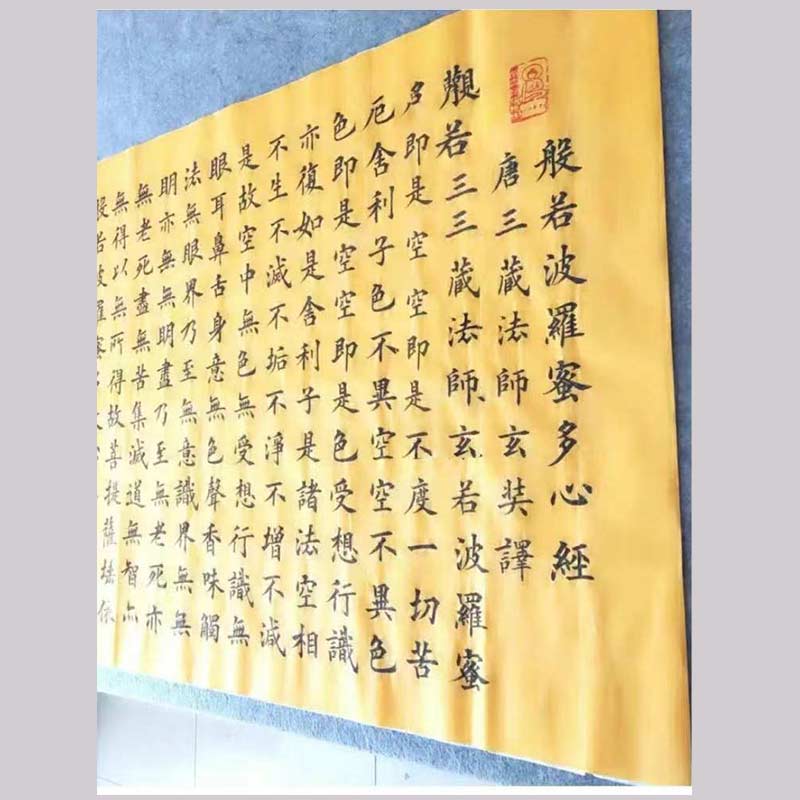 般若波羅蜜多心經
唐三藏法師玄奘譯
觀若三三藏法師玄若波羅蜜
多即是空空即是不度一切苦
厄舍利子色不異空空不異色
色即是空空即是色受想行識
亦復如是舍利子是諸法空相
不生不滅不垢不淨不增不減
是故空中無色無受想行識無
眼耳鼻舌身意無色聲香味觸
法無眼界乃至無意識界無無
明亦無無明盡乃至無老死亦
無老死盡無苦集滅道無智亦
無得以無所得故菩提薩埵依
般若波羅蜜